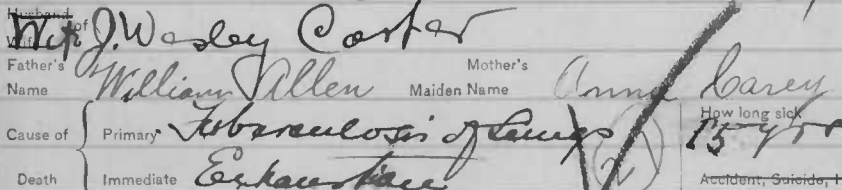 Husband of
Wife
Wife J. Wesley Carter
Father's Name William Allen Mother's Maiden Name Anna Carey
Cause of Death Primary Tuberculosis of Lungs How long sick 15 yrs
Immediate Exhaustion Accident, Suicide,